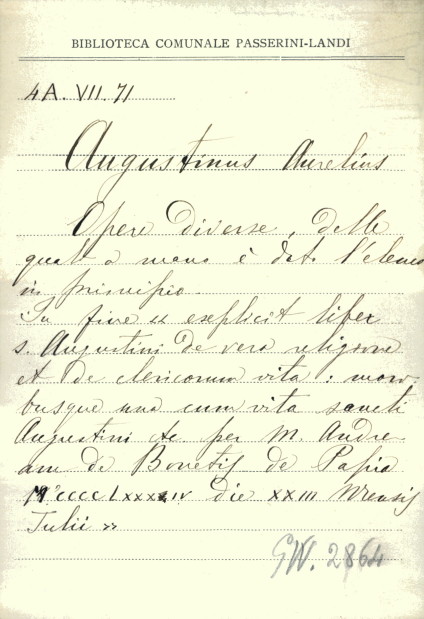 BIBLIOTECA COMUNALE PASSERINI-LANDI
4A. VII. 71
Augustinus Aurelius
Opere diverse, delle
quali a mano è dato l'elenco
in principio.
In fine « explicit liber
s. Augustini de vera religione
et de clericorum vita: mori-
busque una cum vita sancti
Augustini etc per M. Andre-
am de Bonetis de Papia
M°ccccLxxxIV die XXIII Mensis
Julii »
GW. 2864